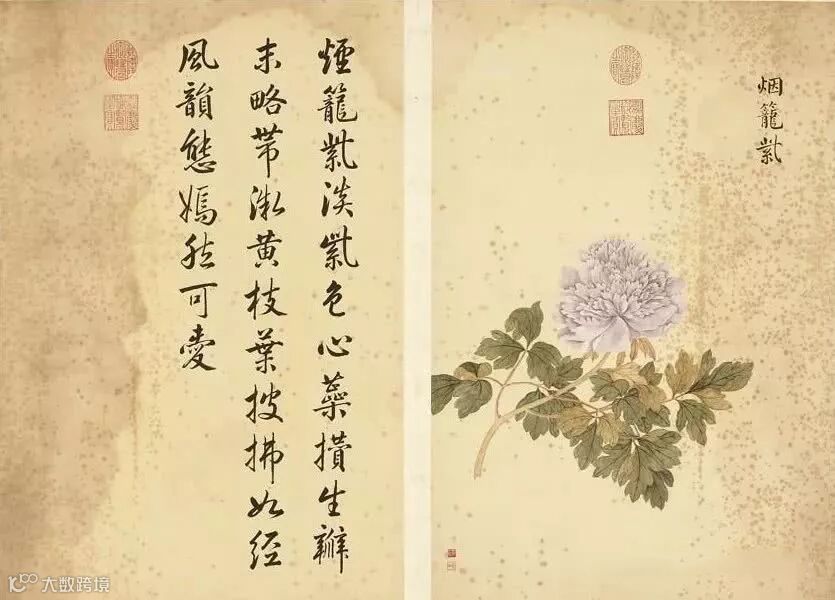 烟籠紫
煙籠紫淡紫色心蘂攢生瓣
末略帶微黄枝葉披拂如經
風韻態嫣然可愛
大数跨境